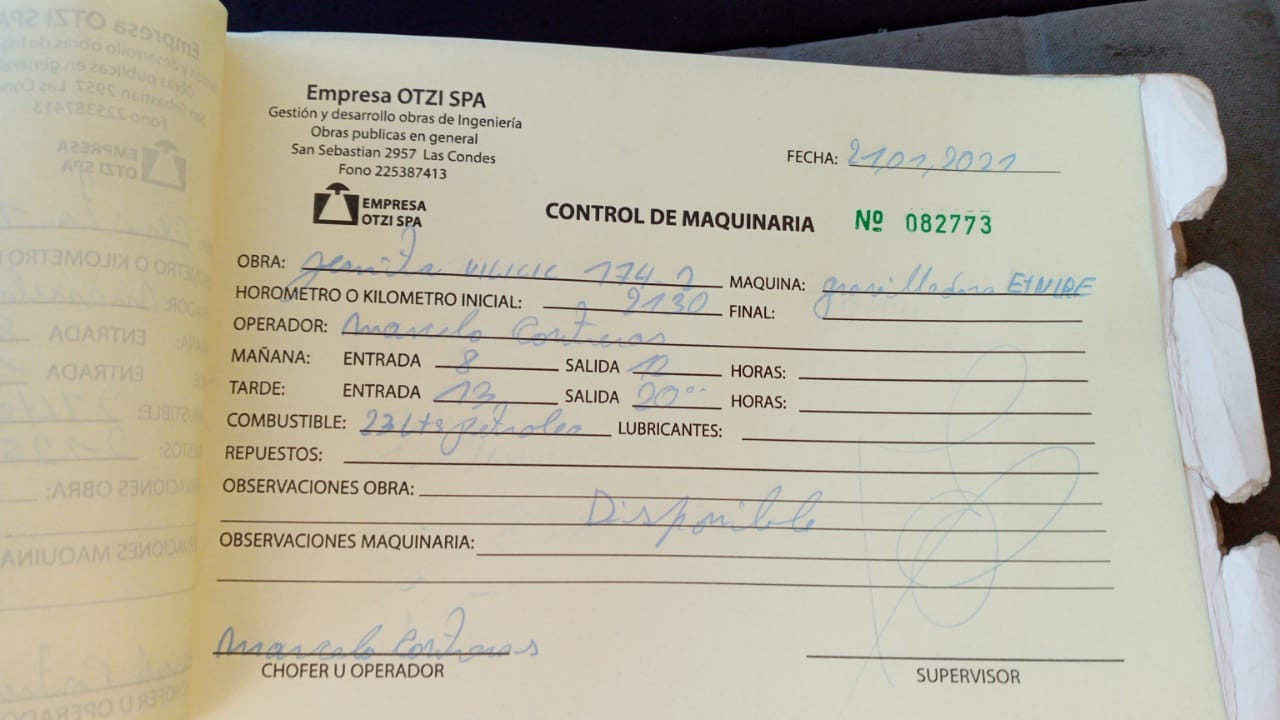 Empresa OTZI SPA
Gestión y desarrollo obras de Ingeniería
Obras publicas en general
San Sebastian 2957 Las Condes
Fono 225387413
EMPRESA
OTZI SPA
FECHA: 21,01,2021
CONTROL DE MAQUINARIA Nº 082773
OBRA: 174.2 MAQUINA: gravilladora ETNIRE
HOROMETRO O KILOMETRO INICIAL: 2130 FINAL:
OPERADOR: Marcelo Contreras
MAÑANA: ENTRADA 8 SALIDA 12 HORAS:
TARDE: ENTRADA 13 SALIDA 20°° HORAS:
COMBUSTIBLE: 23 Lts petroleo LUBRICANTES:
REPUESTOS:
OBSERVACIONES OBRA:
Disponible
OBSERVACIONES MAQUINARIA:
Marcelo Contreras
CHOFER U OPERADOR
SUPERVISOR